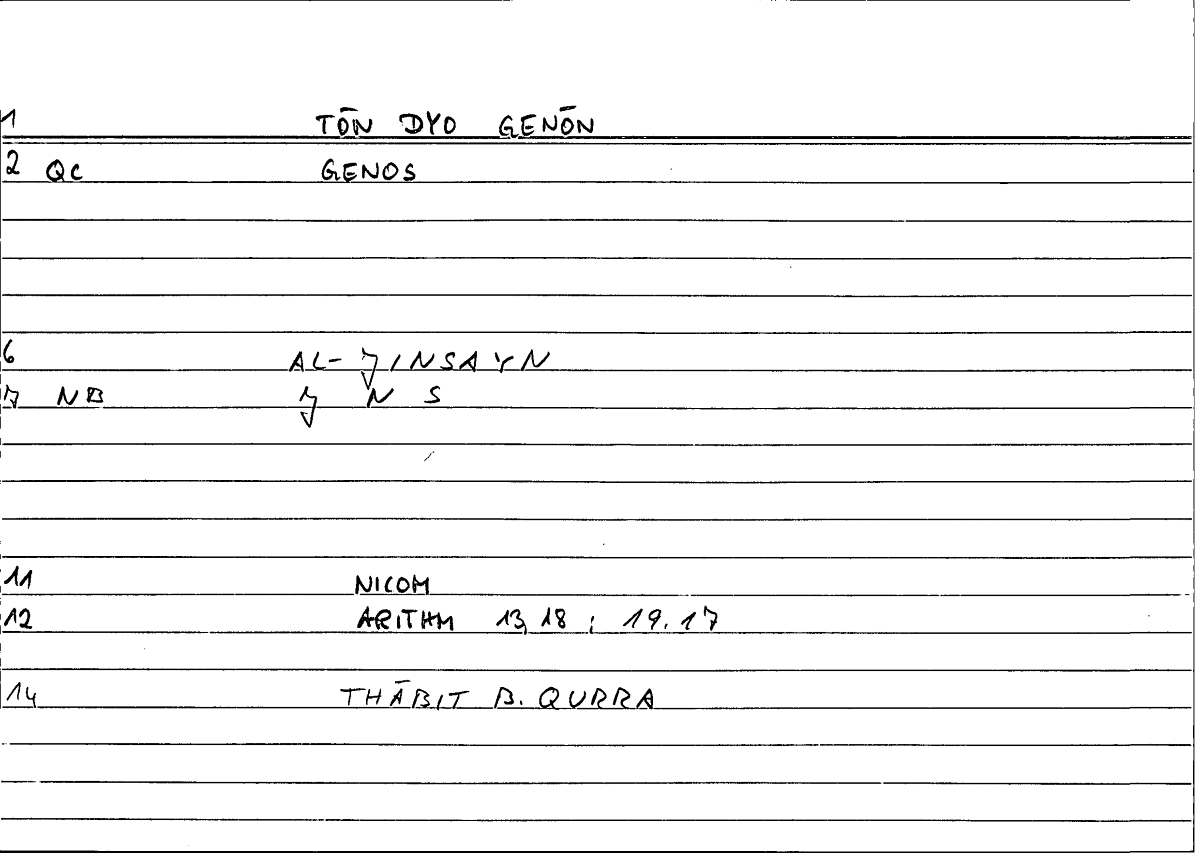 1 TŌN DYO GENŌN
2 QC GENOS
6 AL-J̬INSAYN
7 NB J̬ N S
11 NICOM
12 ARITHM 13,18 ; 19.17
14 THĀBIT B. QURRA